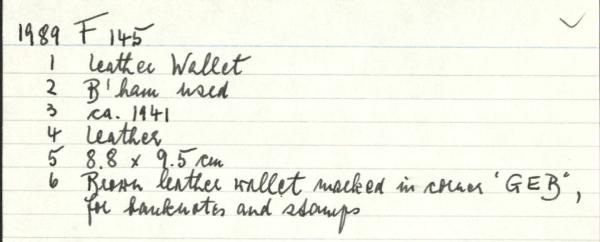 1989 F 145
1 Leather Wallet
2 B'ham used
3 ca. 1941
4 Leather
5 8.8 x 9.5 cm
6 Brown leather wallet marked in corner "GEB",
for banknotes and stamps